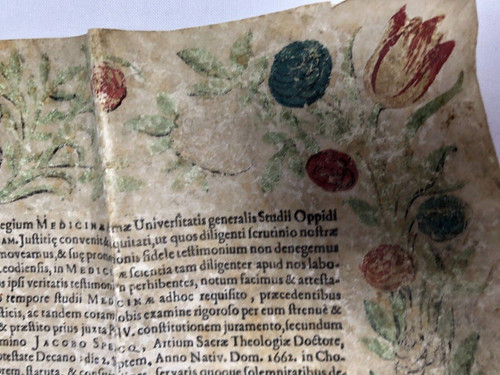 egium MEDICINÆ Universitatis generalis Studii Oppidi
AM. Justitię convenit & æquitati, ut quos diligenti scrutinio nostræ
moveamus, & suę pro ionis fidele testimonium non denegemus
codiensis, in MEDIC scientia tam diligenter apud nos labo-
s ipsi veritatis testimoni perhibentes, notum facimus & attesta-
s tempore studii MEDICINÆ adhoc requisito, præcedentibus
ticis, ac tandem coram nobis examine rigoroso per eum strenuè &
& præstito prius juxta IV. constitutionem juramento, secundum
mino JACOBO Artium Sacræ Theologiæ Doctore,
testate Decano die 2. Septem, Anno Nativ. Dom. 1662. in Cho-
rem, statuta, & servaris quoque solemniratibus de